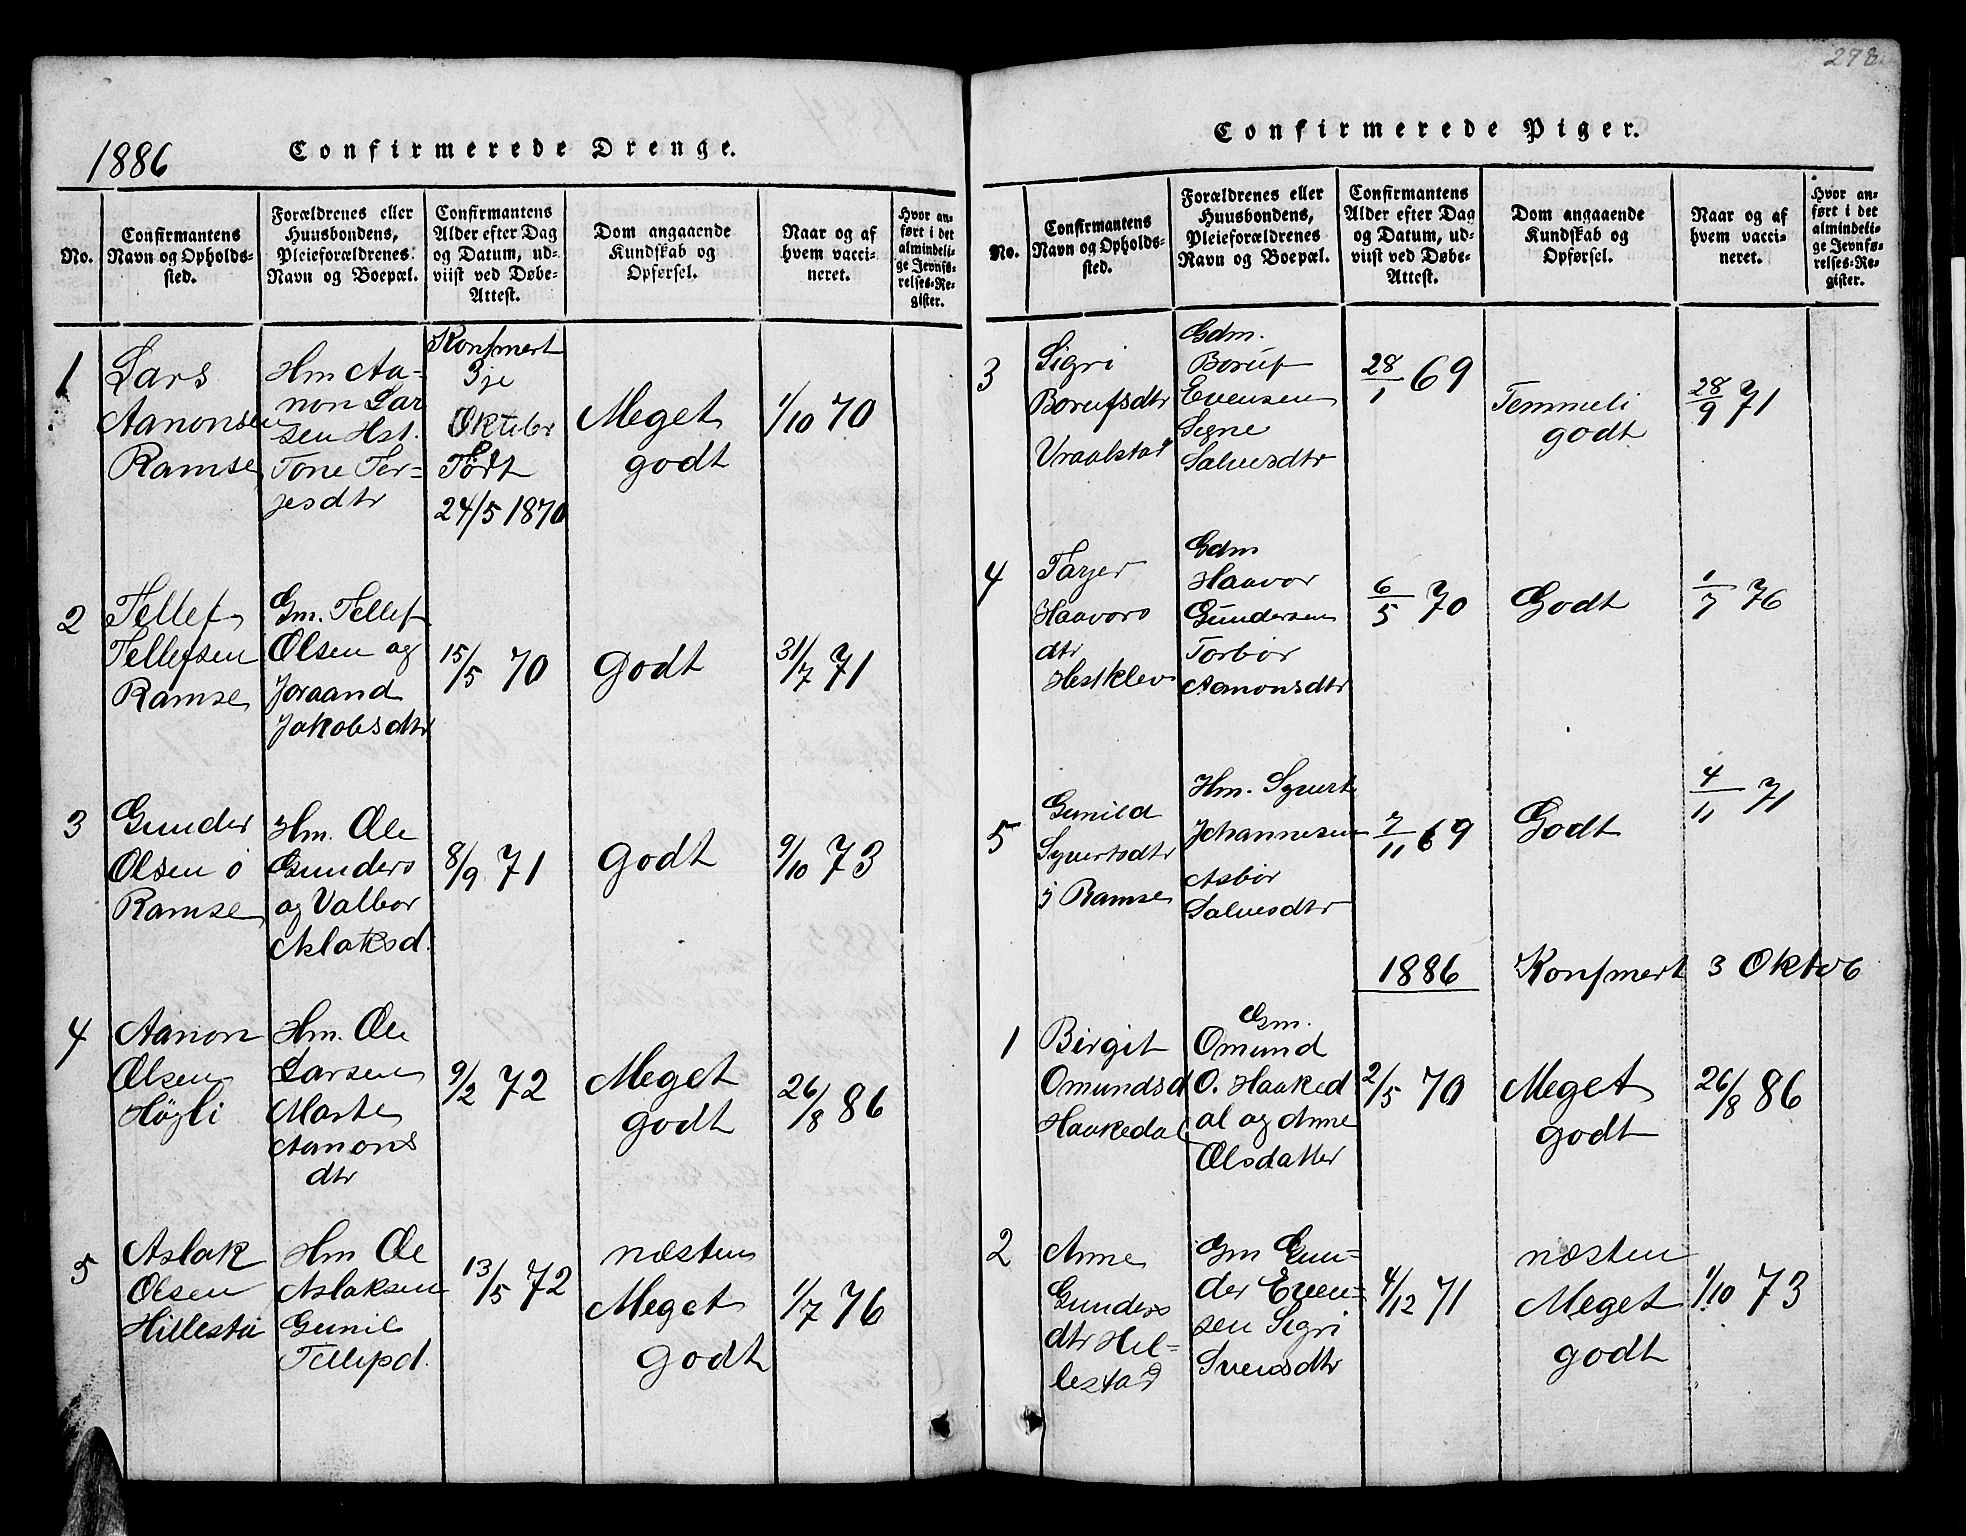 1886
Confirmerede Drenge.
No.
Confirmantens
Navn og Opholds-
sted.
Forældrenes eller
Huusbondens,
Pleieforældrenes
Navn og Boepæl.
Confirmantens
Alder efter Dag
og Datum, ud-
viist ved Døbe-
Attest.
Dom angaaende
Kundskab og
Opførsel.
Naar og af
hvem vacci-
neret.
Hvor an-
ført i det
almindeli-
ge Jevnfø-
relses-Re-
gister.
1
Lars
Aanonsen
Ramse
Hm Aa-
non Lar
sen Hst.
Tone Ter-
jesdtr
Konfmert
3je
Oktober
Født
24/5 1870
Meget
godt
1/10 70
2
Tellef
Tellefsen
Ramse
Gm. Tellef
Olsen og
Joraand
Jakobsdtr
15/5 70
Godt
31/7 71
3
Gunder
Olsen o
Ramse
Hm. Ole
Gunders
og Valbor
Aslaksd.
8/9 71
Godt
9/10 73
4
Aanon
Olsen
Høgli
Hm. Ole
Larsen
Marte
Aanons
dtr
9/2 72
Meget
godt
26/8 86
5
Aslak
Olsen
Hillestá
Hm Ole
Aslaksen
Gunil
Tellepd.
13/5 72
næsten
Meget
godt
1/7 76
278
Confirmerede Piger.
No.
Confirmantens
Navn og Opholds-
sted.
Forældrenes eller
Huusbondens,
Pleieforældrenes
Navn og Boepæl.
Confirmantens
Alder efter Dag
og Datum, ud-
viist ved Døbe-
Attest.
Dom angaaende
Kundskab og
Opførsel.
Naar og af
hvem vacci-
neret.
Hvor an-
ført i det
almindeli-
ge Jevnfø-
relses-Re-
gister.
3
Sigri
Borufsdtr
Vraalstad
Gdm.
Boruf
Evensen
Signe
Salvesdtr
28/1 69
Temmeli
godt
28/9 71
4
Tarjer
Haavors
dtr
Hestklev
Gdm
Haavor
Gundersen
Torbor
Aanonsdtr
6/5 70
Godt
1/7 76
5
Gunild
Syvertsdtr
i Ramse
Hm. Syvert
Johannesen
Asbor
Salvesdtr
7/11 69
Godt
4/11 71
1886 Konfmert 3 Oktob
1
Birgit
Omundsd
Haakedal
Gm.
Omund
O. Haaked
al og Anne
Olsdatter
2/5 70
Meget
godt
26/8 86
2
Anne
Gunders
dtr Hil-
lestad
Gm Gun-
der Even-
sen Sigri
Svensdtr
4/12 71
næsten
Meget
godt
1/10 73